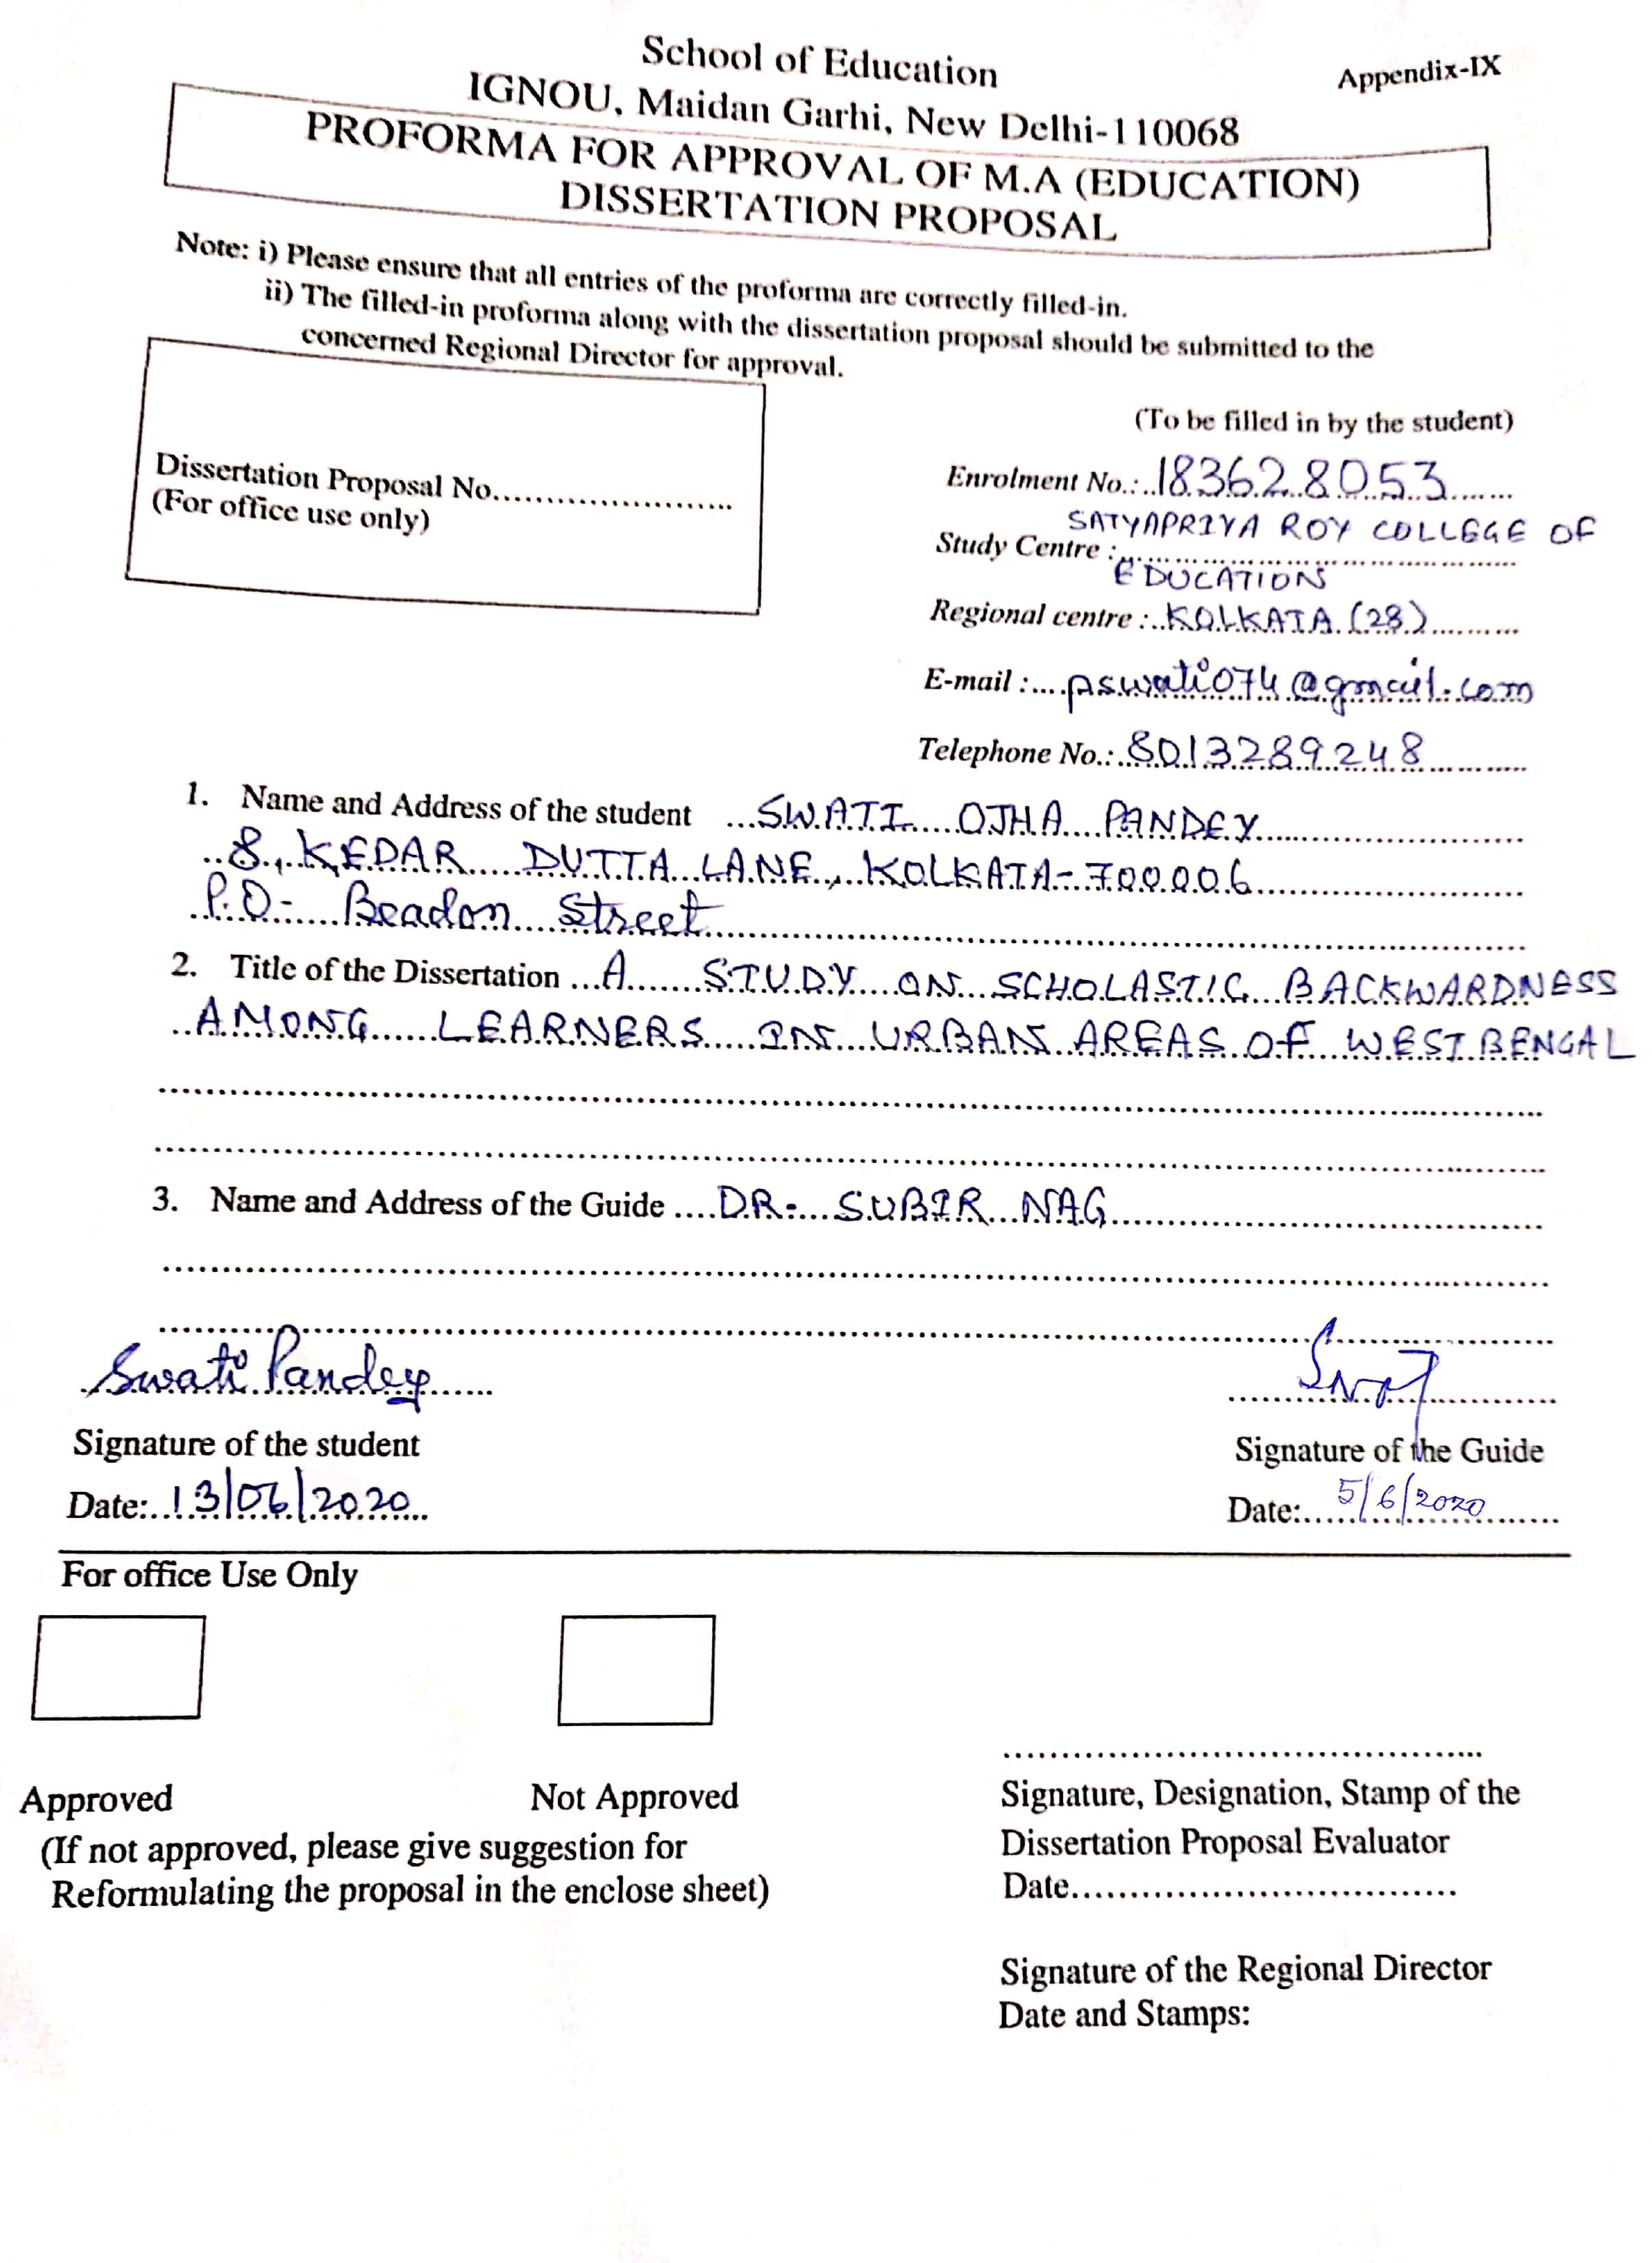 School of Education
Appendix-IX
IGNOU, Maidan Garhi, New Delhi-110068
PROFORMA FOR APPROVAL OF M.A (EDUCATION)
DISSERTATION PROPOSAL
Note: i) Please ensure that all entries of the proforma are correctly filled-in.
ii) The filled-in proforma along with the dissertation proposal should be submitted to the
concerned Regional Director for approval.
(To be filled in by the student)
Dissertation Proposal No........................
(For office use only)
Enrolment No.: 183628053
Study Centre : SATYAPRIYA ROY COLLEGE OF
EDUCATION
Regional centre : KOLKATA (28)
E-mail : pswati074@gmail.com
Telephone No.: 8013289248
1. Name and Address of the student SWATI OJHA PANDEY
8, KEDAR DUTTA LANE, KOLKATA-700006
P.O- Beadon Street
2. Title of the Dissertation A STUDY ON SCHOLASTIC BACKWARDNESS
AMONG LEARNERS IN URBAN AREAS OF WEST BENGAL
3. Name and Address of the Guide DR. SUBIR NAG
Swati Pandey
Signature of the student
Signature of the Guide
Date: 13/06/2020
Date: 5/6/2020
For office Use Only
Approved
Not Approved
(If not approved, please give suggestion for
Reformulating the proposal in the enclose sheet)
Signature, Designation, Stamp of the
Dissertation Proposal Evaluator
Date.................................
Signature of the Regional Director
Date and Stamps: